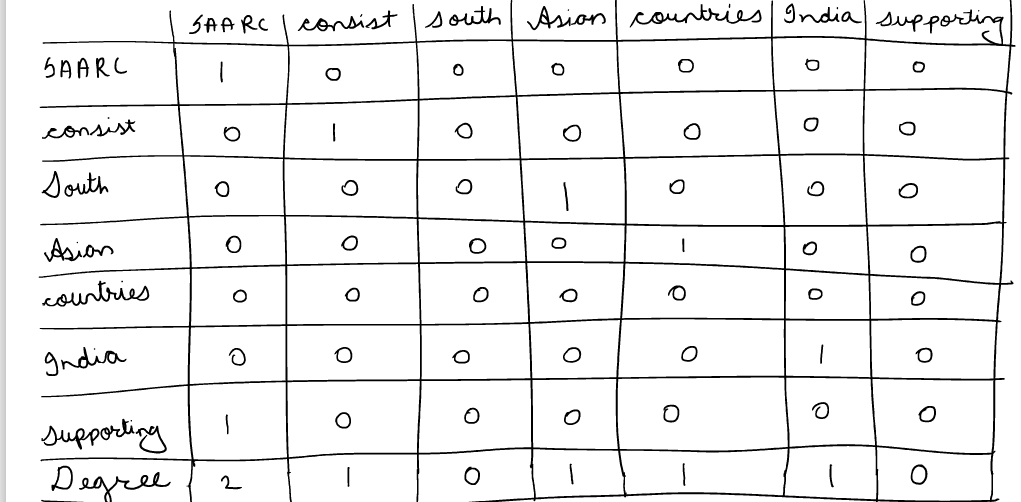 SAARC consist south Asian countries India supporting
SAARC 1 0 0 0 0 0 0
consist 0 1 0 0 0 0 0
South 0 0 0 1 0 0 0
Asian 0 0 0 0 1 0 0
countries 0 0 0 0 0 0 0
India 0 0 0 0 0 1 0
supporting 1 0 0 0 0 0 0
Degree 2 1 0 1 1 1 0